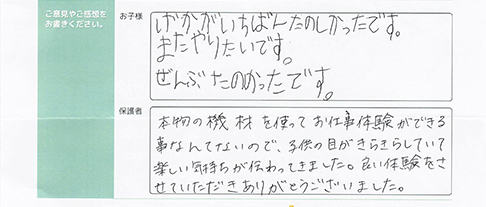 ご意見やご感想を
お書きください。
お子様
げかがいちばんたのしかったです。
またやりたいです。
ぜんぶたのかったです。
保護者
本物の機材を使ってお仕事体験ができる
事なんてないので、子供の目がきらきらしていて
楽しい気持ちが伝わってきました。良い体験をさ
せていただきありがとうございました。